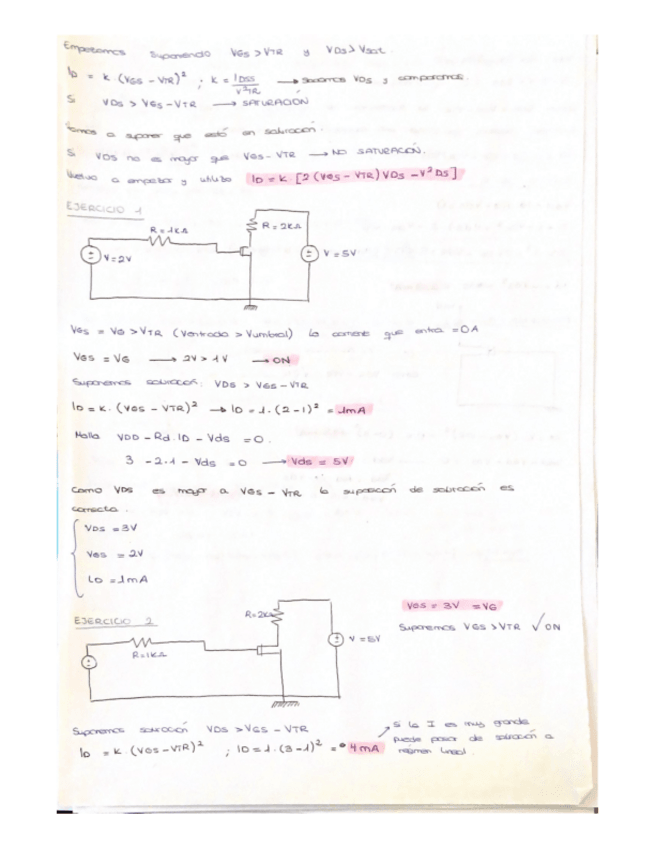 Empezamos suponiendo VGS > VTR y VDS > Vsat.
ID = K·(VGS - VTR)² ; K = IDSS / V²TR → Sacamos VDS y comparamos.
Si VDS > VGS - VTR → SATURACIÓN
Vamos a suponer que está en saturación.
Si VDS no es mayor que VGS - VTR → NO SATURACIÓN.
Vuelvo a empezar y utilizo ID = K·[2(VGS - VTR)VDS - V²DS]
EJERCICIO 1
R = 1KΩ
R = 2KΩ
V = 2V
V = 5V
VGS = VG > VTR (Ventrada > Vumbral) la corriente que entra = 0A
VGS = VG → 2V > 1V → ON
Suponemos saturación: VDS > VGS - VTR
ID = K·(VGS - VTR)² → ID = 1·(2-1)² = 1mA
Malla VDD - Rd·ID - Vds = 0.
3 - 2·1 - Vds = 0 → Vds = 5V
Como VDS es mayor a VGS - VTR la suposición de saturación es
correcta.
VDS = 3V
VGS = 2V
ID = 1mA
EJERCICIO 2
R = 2KΩ
R = 1KΩ
V = 5V
VGS = 3V = VG
Suponemos VGS > VTR ✓ ON
Suponemos saturación VDS > VGS - VTR
ID = K·(VGS - VTR)² ; ID = 1·(3-1)² = 4mA
Si la I es muy grande
puede pasar de saturación a
régimen lineal.